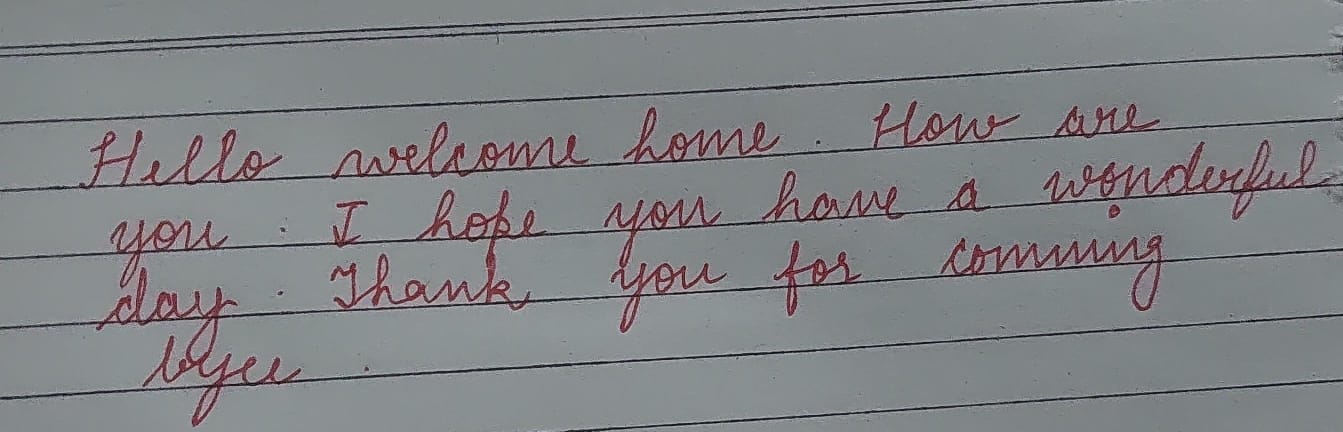 Hello welcome home. How are
you. I hope you have a wonderful
day. Thank you for comming
byee.